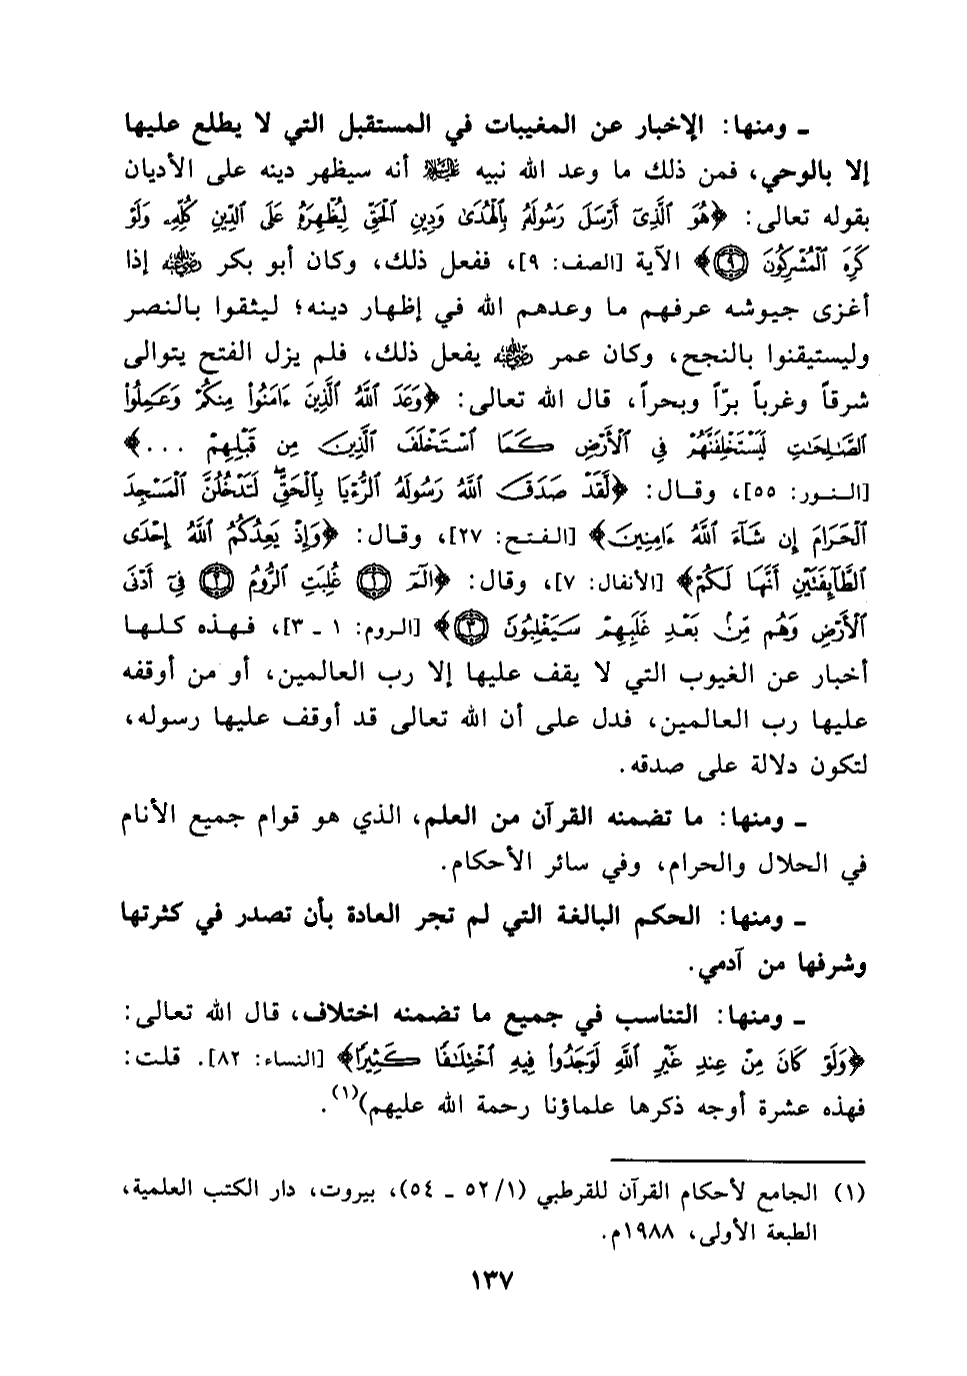 ـ ومنها: الإخبار عن المغيبات في المستقبل التي لا يطلع عليها
إلا بالوحي، فمن ذلك ما وعد الله نبيه ﷺ أنه سيظهر دينه على الأديان
بقوله تعالى: ﴿هُوَ ٱلَّذِىٓ أَرْسَلَ رَسُولَهُۥ بِٱلْهُدَىٰ وَدِينِ ٱلْحَقِّ لِيُظْهِرَهُۥ عَلَى ٱلدِّينِ كُلِّهِۦ وَلَوْ
كَرِهَ ٱلْمُشْرِكُونَ ۝٩﴾ الآية [الصف: ٩]، ففعل ذلك، وكان أبو بكر رضي الله عنه إذا
أغزى جيوشه عرفهم ما وعدهم الله في إظهار دينه؛ ليثقوا بالنصر
وليستيقنوا بالنجح، وكان عمر رضي الله عنه يفعل ذلك، فلم يزل الفتح يتوالى
شرقاً وغرباً برّاً وبحراً، قال الله تعالى: ﴿وَعَدَ ٱللَّهُ ٱلَّذِينَ ءَامَنُوا۟ مِنكُمْ وَعَمِلُوا۟
ٱلصَّـٰلِحَـٰتِ لَيَسْتَخْلِفَنَّهُمْ فِى ٱلْأَرْضِ كَمَا ٱسْتَخْلَفَ ٱلَّذِينَ مِن قَبْلِهِمْ ...﴾
[النور: ٥٥]، وقال: ﴿لَّقَدْ صَدَقَ ٱللَّهُ رَسُولَهُ ٱلرُّءْيَا بِٱلْحَقِّ ۖ لَتَدْخُلُنَّ ٱلْمَسْجِدَ
ٱلْحَرَامَ إِن شَآءَ ٱللَّهُ ءَامِنِينَ﴾ [الفتح: ٢٧]، وقال: ﴿وَإِذْ يَعِدُكُمُ ٱللَّهُ إِحْدَى
ٱلطَّآئِفَتَيْنِ أَنَّهَا لَكُمْ﴾ [الأنفال: ٧]، وقال: ﴿الٓمٓ ۝١ غُلِبَتِ ٱلرُّومُ ۝٢ فِىٓ أَدْنَى
ٱلْأَرْضِ وَهُم مِّنۢ بَعْدِ غَلَبِهِمْ سَيَغْلِبُونَ ۝٣﴾ [الروم: ١ ـ ٣]، فهذه كلها
أخبار عن الغيوب التي لا يقف عليها إلا رب العالمين، أو من أوقفه
عليها رب العالمين، فدل على أن الله تعالى قد أوقف عليها رسوله،
لتكون دلالة على صدقه.
ـ ومنها: ما تضمنه القرآن من العلم، الذي هو قوام جميع الأنام
في الحلال والحرام، وفي سائر الأحكام.
ـ ومنها: الحكم البالغة التي لم تجر العادة بأن تصدر في كثرتها
وشرفها من آدمي.
ـ ومنها: التناسب في جميع ما تضمنه اختلاف، قال الله تعالى:
﴿وَلَوْ كَانَ مِنْ عِندِ غَيْرِ ٱللَّهِ لَوَجَدُوا۟ فِيهِ ٱخْتِلَـٰفًا كَثِيرًا﴾ [النساء: ٨٢]. قلت:
فهذه عشرة أوجه ذكرها علماؤنا رحمة الله عليهم)(١).
(١) الجامع لأحكام القرآن للقرطبي (١/ ٥٢ ـ ٥٤)، بيروت، دار الكتب العلمية،
الطبعة الأولى، ١٩٨٨م.
١٣٧